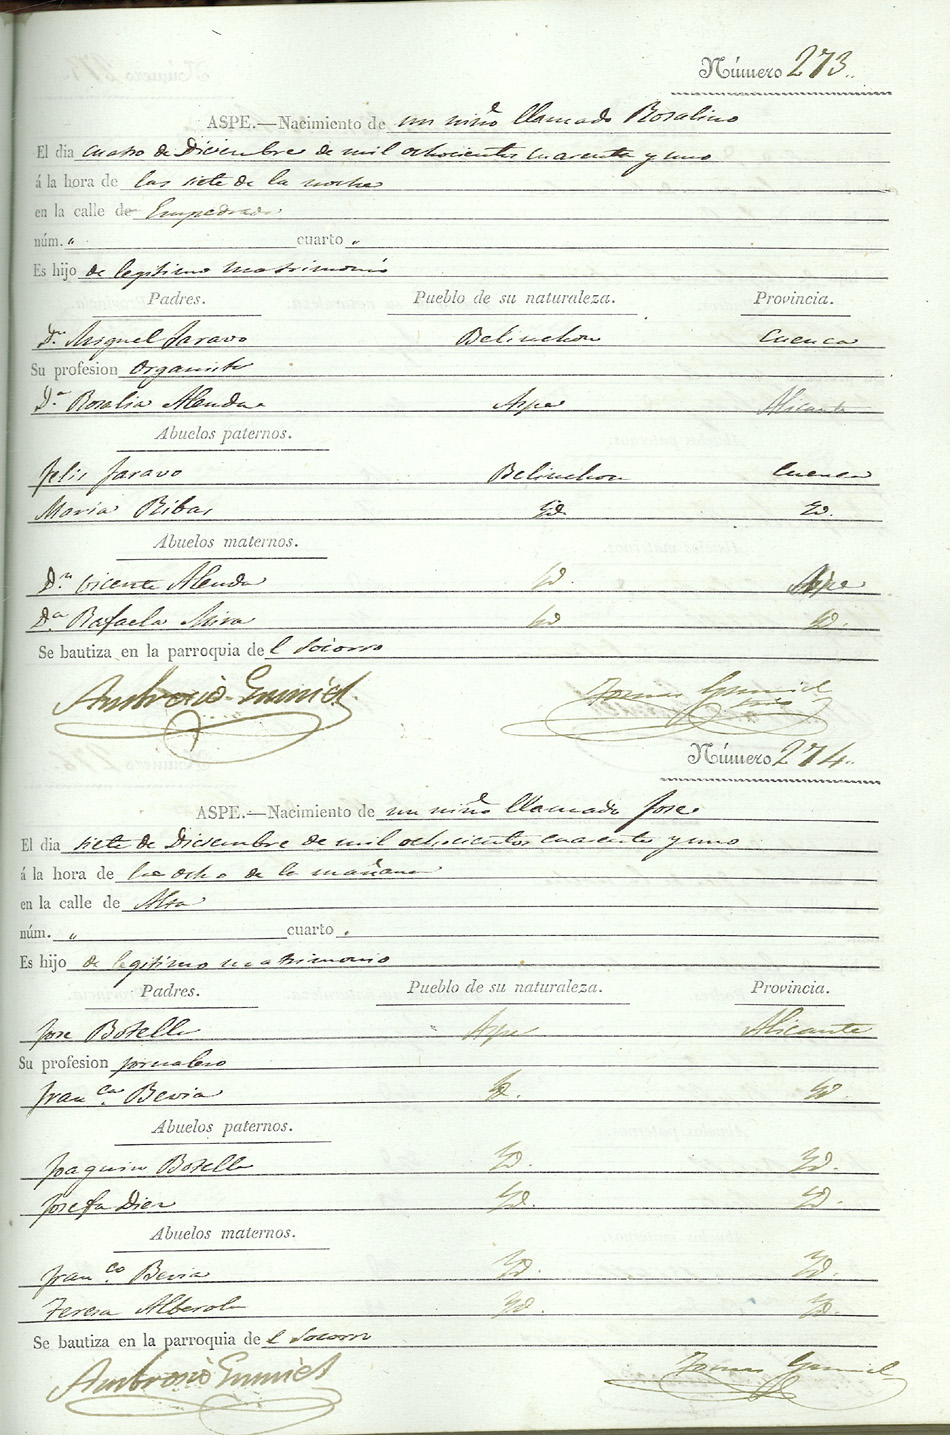 Número 273.
ASPE.—Nacimiento de un niño llamado Rosalino
El dia cuatro de Diciembre de mil ochocientos cuarenta y uno
á la hora de las siete de la noche
en la calle de Empedrada
núm. " cuarto "
Es hijo de legitimo matrimonio
Padres. Pueblo de su naturaleza. Provincia.
Dn. Miguel Jaravo Belinchon Cuenca
Su profesion Organista
Da. Rosalia Alenda Aspe Alicante
Abuelos paternos.
Felis Jaravo Belinchon Cuenca
Maria Ribas Yd. Yd.
Abuelos maternos.
Dn. Vicente Alenda Yd. Aspe
Da. Rafaela Mira Yd. Yd.
Se bautiza en la parroquia del Socorro
Ambrosio Gumiel Tomas Gumiel
Número 274.
ASPE.—Nacimiento de un niño llamado Jose
El dia siete de Diciembre de mil ochocientos cuarenta y uno
á la hora de las ocho de la mañana
en la calle de Alta
núm. " cuarto "
Es hijo de legitimo matrimonio
Padres. Pueblo de su naturaleza. Provincia.
Jose Botella Aspe Alicante
Su profesion jornalero
Franca. Bevia Yd. Yd.
Abuelos paternos.
Joaquin Botella Yd. Yd.
Josefa Diez Yd. Yd.
Abuelos maternos.
Franco. Bevia Yd. Yd.
Teresa Alberola Yd. Yd.
Se bautiza en la parroquia del Socorro
Ambrosio Gumiel Tomas Gumiel